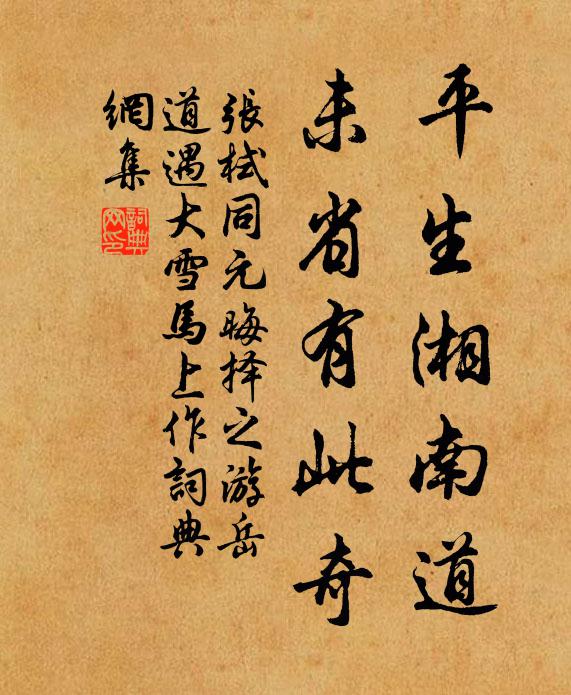 平生湘南道
未省有此奇
張栻同元晦择之游岳
道遇大雪馬上作詞典
網集
詞典網印